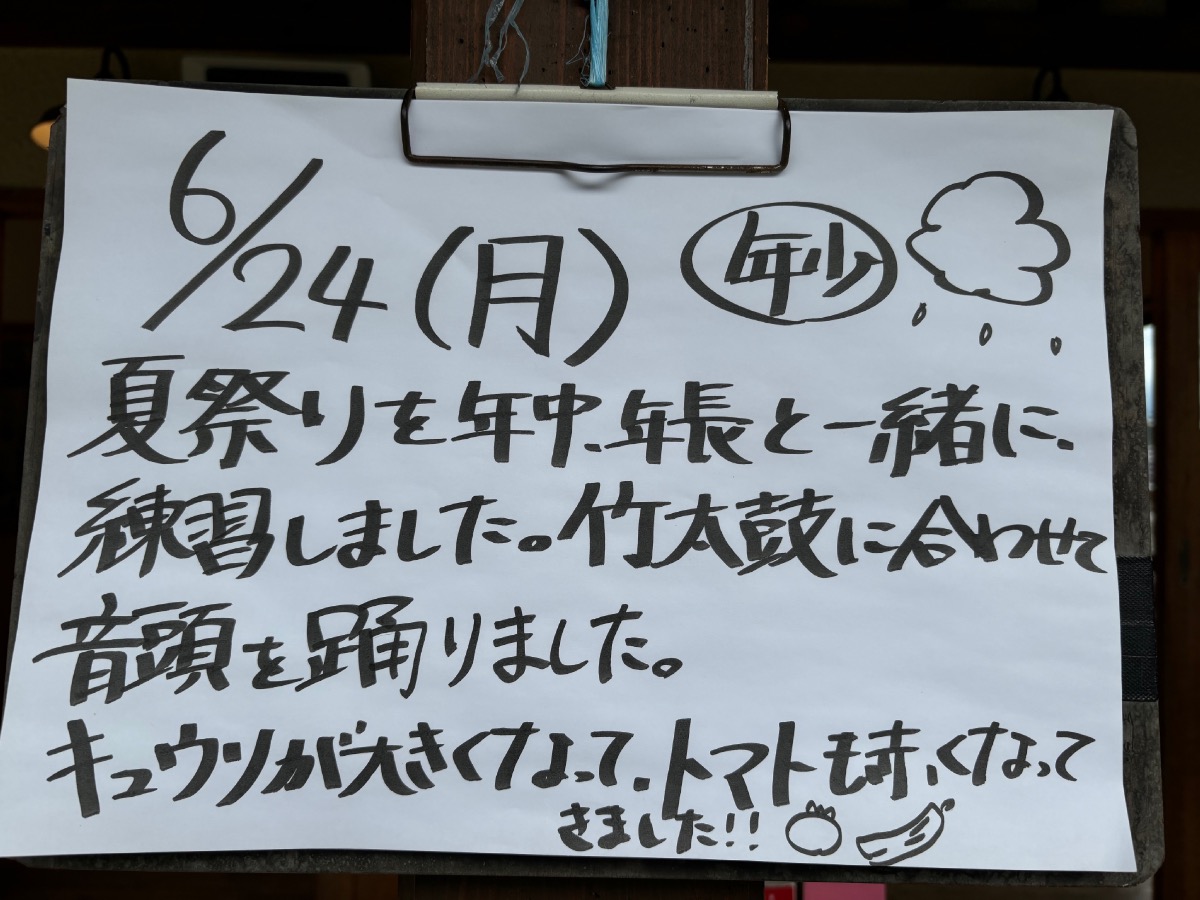 6/24(月) 年少
夏祭りを年中、年長と一緒に、
練習しました。竹太鼓に合わせて
音頭を踊りました。
キュウリが大きくなって、トマトも赤くなって
きました!!